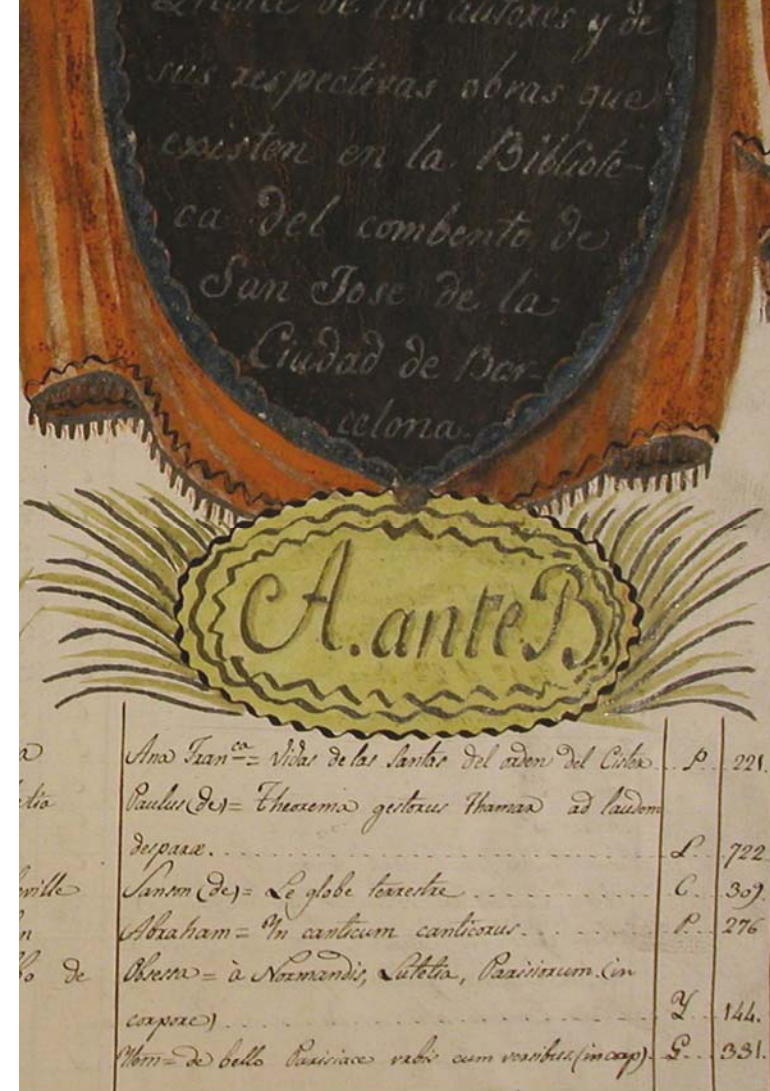 Indice de los autores y de
sus respectivas obras que
existen en la Bibliote-
ca del combento de
San Jose de la
Ciudad de Bar-
celona.
A. ante B.
Ana Fran.ca = Vidas de las Santas del orden del Cister P. 221.
Paulus (de) = Theorema gestorus Thamar ad laudem
deiparæ. 722
eville Sanson (de) = Le globe terrestre C. 309.
Abraham = In canticum canticorus. P. 276
de Obsessa = à Normandis, Lutetia, Parisiorum. (in
corpore) Y. 144.
Item = de bello Parisiace vrbis cum versibus. (in corp). G. 331.